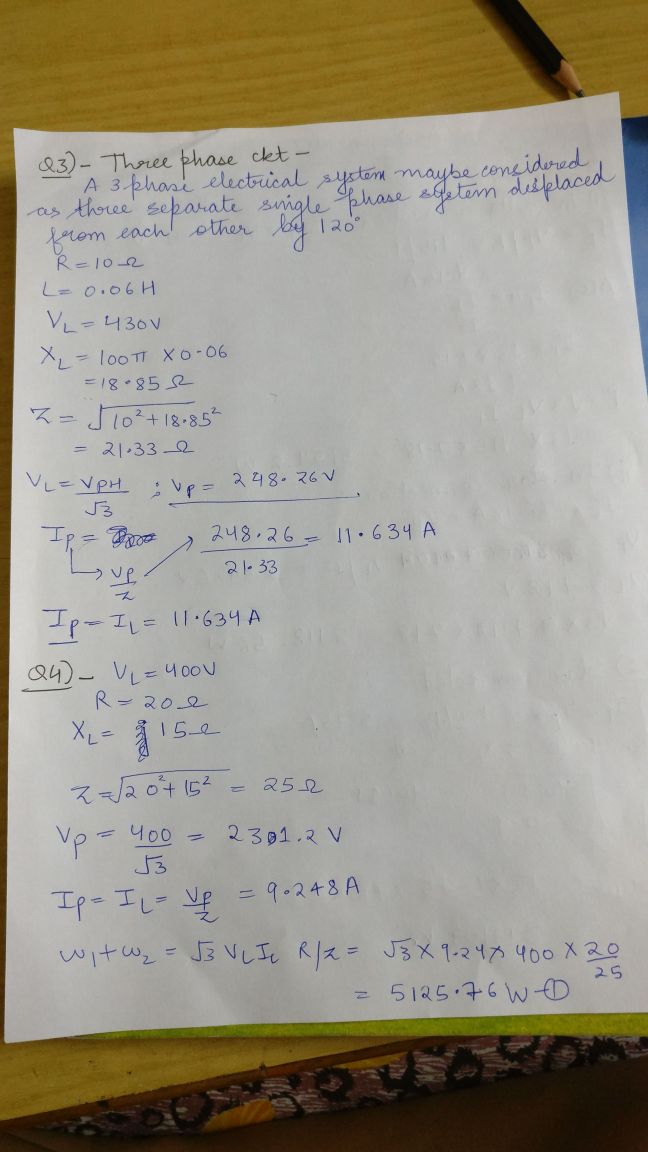 Q3)- Three phase ckt -
A 3 phase electrical system maybe considered
as three separate single phase system displaced
from each other by 120°
R = 10 Ω
L = 0.06 H
VL = 430V
XL = 100π × 0.06
= 18.85 Ω
Z = √10² + 18.85²
= 21.33 Ω
VL = VPH/√3 ; Vp = 248.26 V
Ip = Vp/Z → 248.26/21.33 = 11.634 A
Ip = IL = 11.634 A
Q4)- VL = 400V
R = 20 Ω
XL = 15 Ω
Z = √20² + 15² = 25 Ω
Vp = 400/√3 = 2301.2 V
Ip = IL = Vp/Z = 9.248 A
W1 + W2 = √3 VL IL R/Z = √3 × 9.24 × 400 × 20/25
= 5125.76 W -①